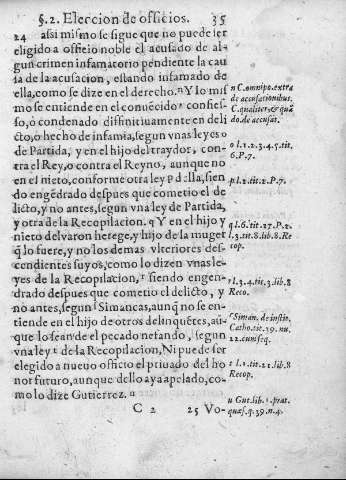 §.2. Eleccion de officios. 35
24 assi mismo se sigue que no puede ser
eligido a officio noble el acusado de al-
gun crimen infamatorio pendiente la cau
sa de la acusacion, estando infamado de
ella, como se dize en el derecho. n Y lo mis
mo se entiende en el convēcido, confies-
so, ò condenado diffinitivamente en deli
cto, ò hecho de infamia, segun vnas leyes o
de Partida, y en el hijo del traydor, con-
tra el Rey, o contra el Reyno, aunque no
en el nieto, conforme otra ley p della, sien
do engēdrado despues que cometio el de
licto, y no antes, segun vna ley de Partida,
y otra de la Recopilacion. q Y en el hijo y
nieto del varon herege, y hijo de la muger
q̃ lo fuere, y no los demas vlteriores des-
cendientes suyos, como lo dizen vnas le-
yes de la Recopilacion, r siendo engen-
drado despues que cometio el delicto, y
no antes, segun s Simancas, aunq̃ no se en-
tiende en el hijo de otros delinquētes, aū-
que lo sean de el pecado nefando, segun
vna ley t de la Recopilacion, Ni puede ser
elegido a nuevo officio el privado del ho
nor futuro, aunque dello aya apelado, co-
mo lo dize Gutierrez. u
n C. omnipo. extra
de accusationibus.
C. qualiter, & quā
do. de accusat.
o l. 1. 2. 3. 4. 5. tit.
6. P. 7.
p l. 2. tit. 2. P. 7.
q l. 6. tit. 27. P. 2.
l. 3. tit. 18. lib. 8. Re
cop.
r l. 3. 4. tit. 3. lib. 8
Reco.
s Siman. de instit.
Catho. tit. 39. nu.
22. cum seq.
t l. 1. tit. 21. lib. 8
Recop.
u Gut. lib. 1. prat.
quæs. q. 39. n. 4.
C 2 25 Vo-